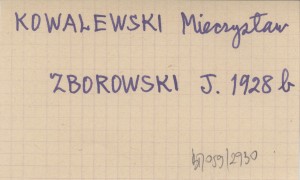 KOWALEWSKI Mieczysław
ZBOROWSKI J. 1928 b
/059/2930